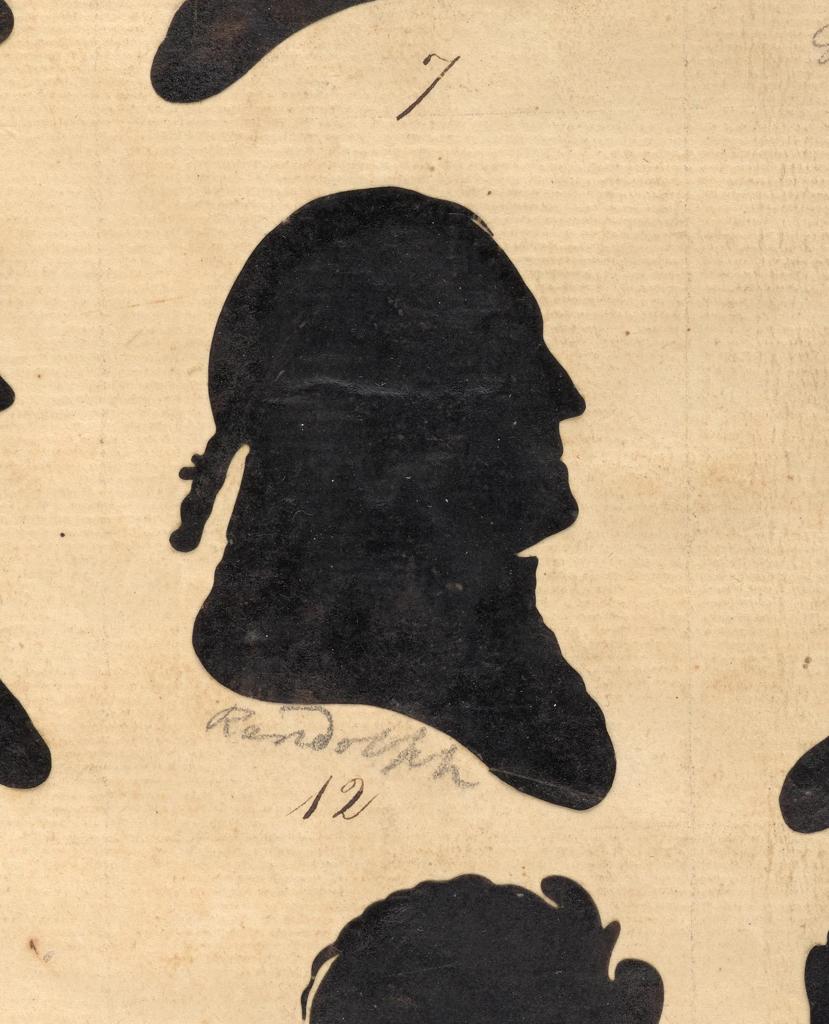 7
Randolph
12